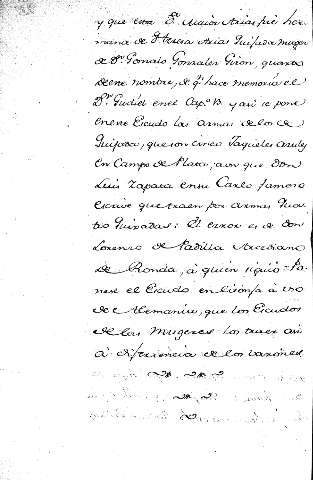 y que esta D.ª Maria Arias fue her
mana de D.ª Teresa Arias Quijada muger
de D.n Gonzalo Gonzales Giron, quarto
de este nombre, de q.n hace memoria el
D.r Gudiel en el Cap.o 13 y asi se pone
en este Escudo las armas de los de
Quijada, que son cinco Jaqueles azules
en Campo de Plata; aunque Don
Luis Zapata en su Carlo famoso
escrive que traen por armas Qua
tro Quixadas: El error es de don
Lorenzo de Padilla Arcediano
de Ronda, á quien siguió. Po
nese el Escudo en lisonja á uso
de Alemania, que los Escudos
de las Mugeres los traen asi
á diferiencia de los varones